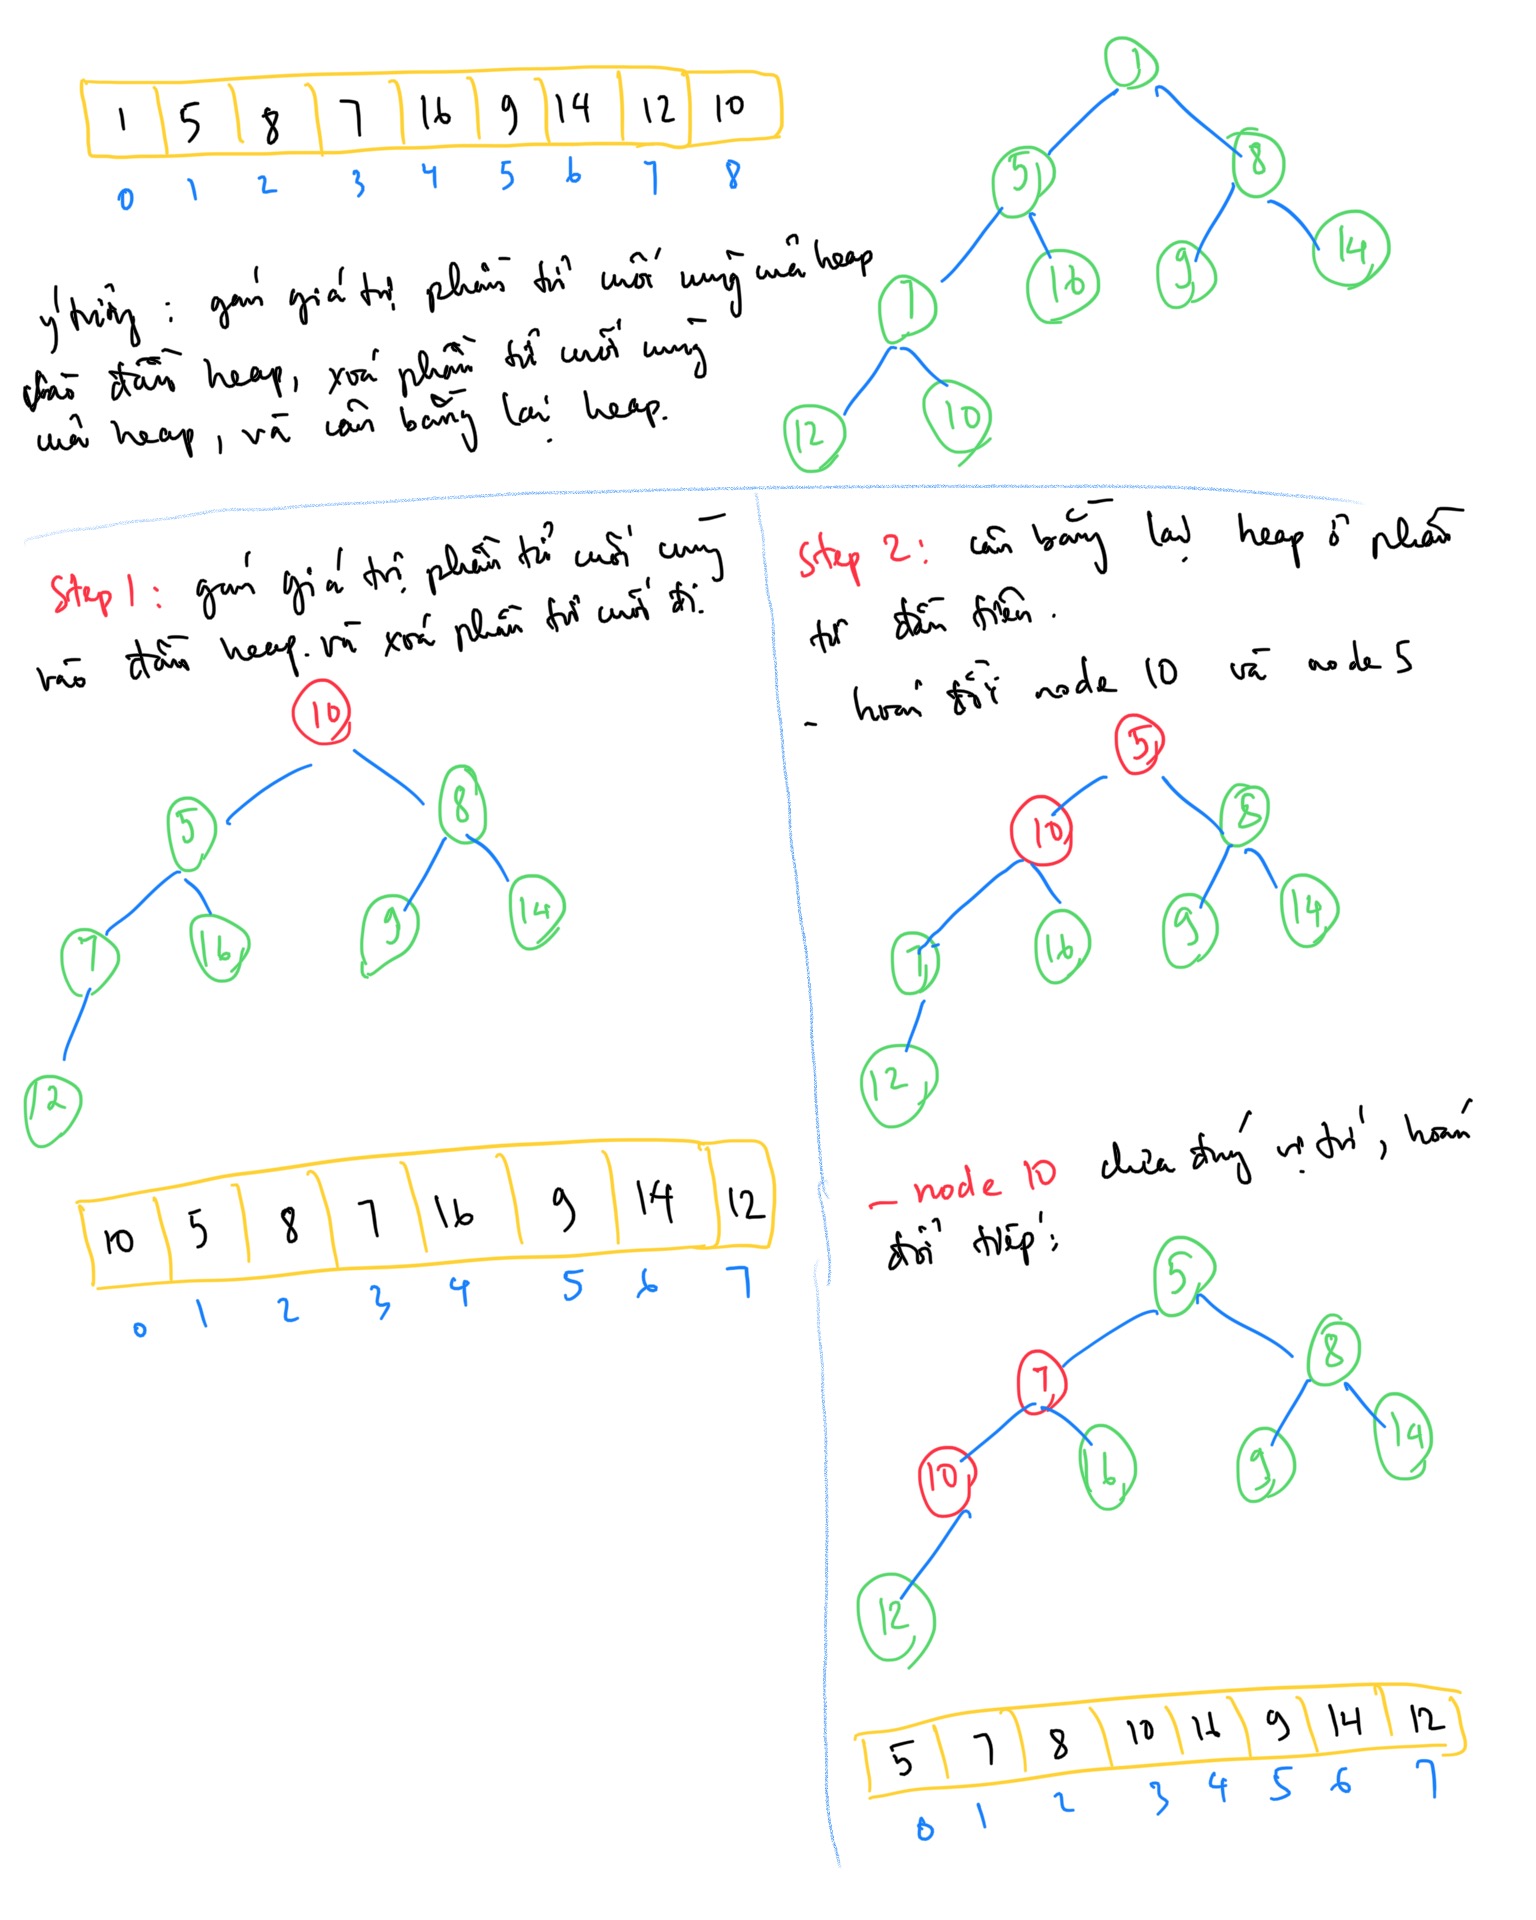 1 5 8 7 16 9 14 12 10
0 1 2 3 4 5 6 7 8
1
5 8
7 16 9 14
12 10
ý tưởng : gán giá trị phần tử cuối cùng của heap
vào đầu heap, xoá phần tử cuối cùng
của heap, và cân bằng lại heap.
Step 1: gán giá trị phần tử cuối cùng
vào đầu heap. và xoá phần tử cuối đi.
10
5 8
7 16 9 14
12
10 5 8 7 16 9 14 12
0 1 2 3 4 5 6 7
Step 2: cân bằng lại heap ở phần
tử đầu tiên.
- hoán đổi node 10 và node 5
5
10 8
7 16 9 14
12
- node 10 chưa đúng vị trí, hoán
đổi tiếp:
5
7 8
10 16 9 14
12
5 7 8 10 16 9 14 12
0 1 2 3 4 5 6 7